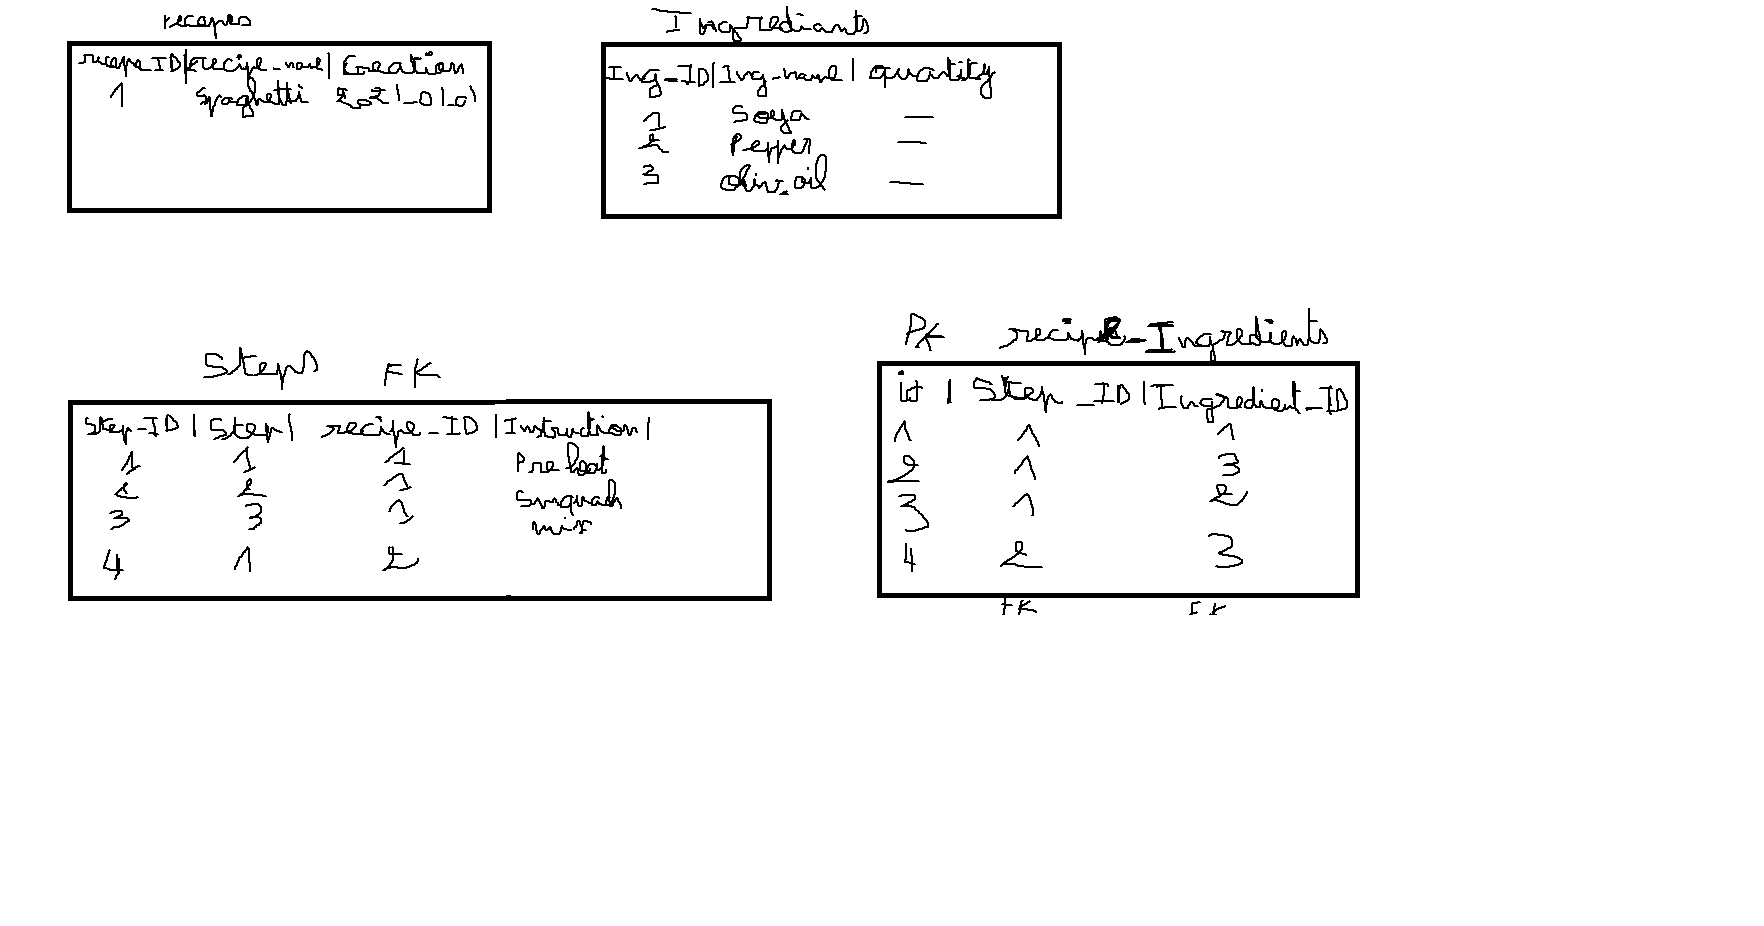 recapes
recape_ID | recipe_name | Creation
1 Spaghetti 2021_01_01
Ingrediants
Ing_ID | Ing_name | quantity
1 Soya —
2 Pepper —
3 oliv_oil —
Steps FK
Step_ID | Step | recipe_ID | Instruction |
1 1 1 Preheat
2 2 1
3 3 1 mix
4 1 2
PK recipe_Ingredients
id | Step_ID | Ingredient_ID
1 1 1
2 1 3
3 1 2
4 2 3
FK FK